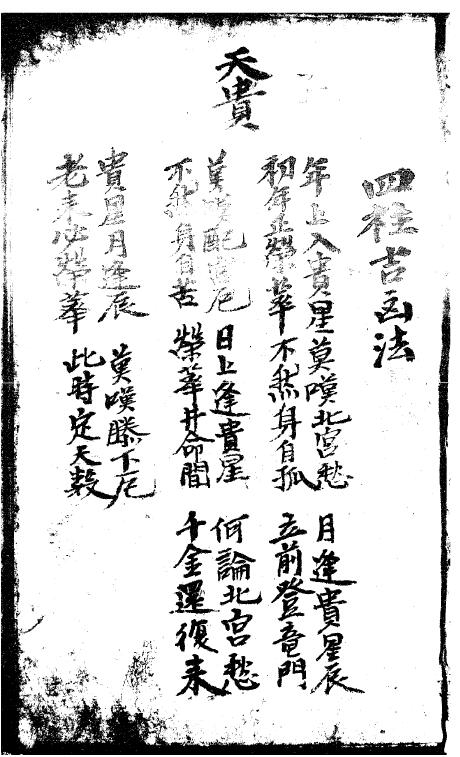 四柱吉凶法
天貴
年上入貴星莫嘆北宮愁 月逢貴星辰
初年榮華不然身自孤 立前登竜門
莫嘆配宮厄 日上逢貴星 何論北宮愁
不然身自苦 榮華井命間 千金還復来
貴星月逢辰 莫嘆膝下厄
老来必榮華 此時定天数